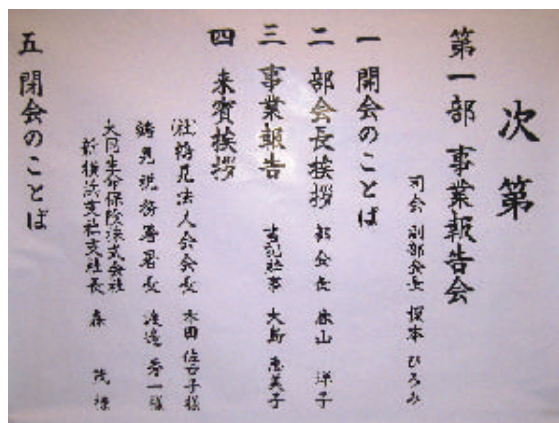 次第
第一部 事業報告会
司会 副部会長 榎本 ひろみ
一 開会のことば
二 部会長挨拶 部会長 森山 洋子
三 事業報告 書記幹事 大島 恵美子
四 来賓挨拶
(社)鶴見法人会会長 本田 佐吉子様
鶴見税務署署長 渡邉 秀一様
大同生命保険株式会社
新横浜支社支社長 森 茂様
五 閉会のことば